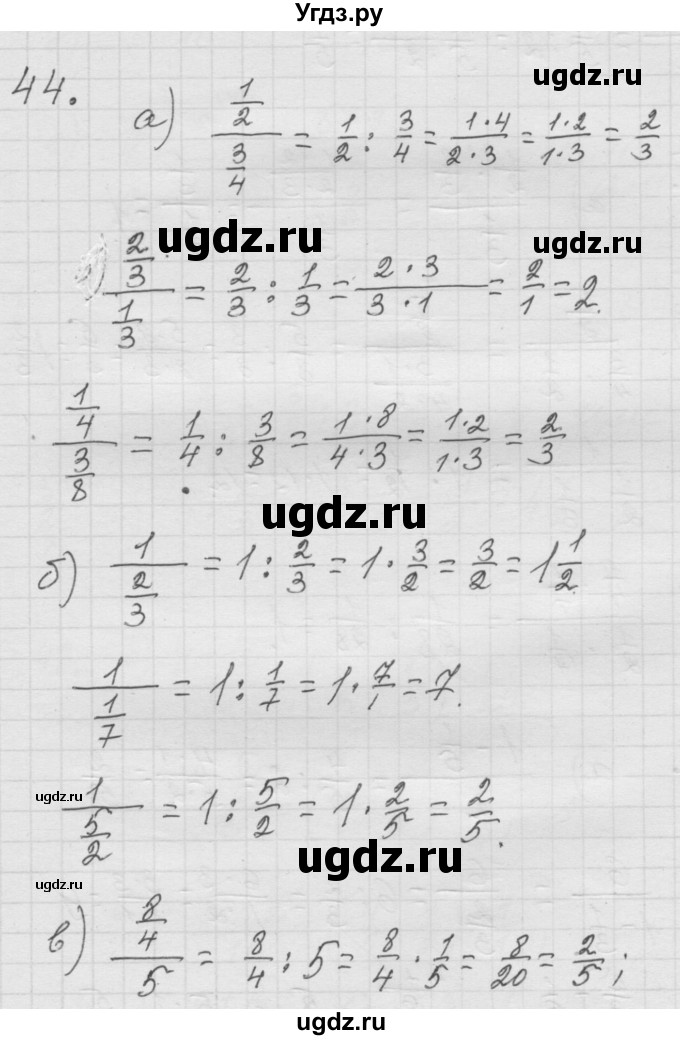 Угдз.ру
44.
ugdz.ru
а) (1/2)/(3/4) = 1/2 : 3/4 = (1·4)/(2·3) = (1·2)/(1·3) = 2/3
ugdz.ru ugdz.ru
(2/3)/(1/3) = 2/3 : 1/3 = (2·3)/(3·1) = 2/1 = 2.
(1/4)/(3/8) = 1/4 : 3/8 = (1·8)/(4·3) = (1·2)/(1·3) = 2/3
ugdz.ru
б) 1/(2/3) = 1 : 2/3 = 1 · 3/2 = 3/2 = 1 1/2
1/(1/7) = 1 : 1/7 = 1 · 7/1 = 7.
ugdz.ru
1/(5/2) = 1 : 5/2 = 1 · 2/5 = 2/5.
ugdz.ru
ugdz.ru
в) (8/4)/5 = 8/4 : 5 = 8/4 · 1/5 = 8/20 = 2/5;
ugdz.ru